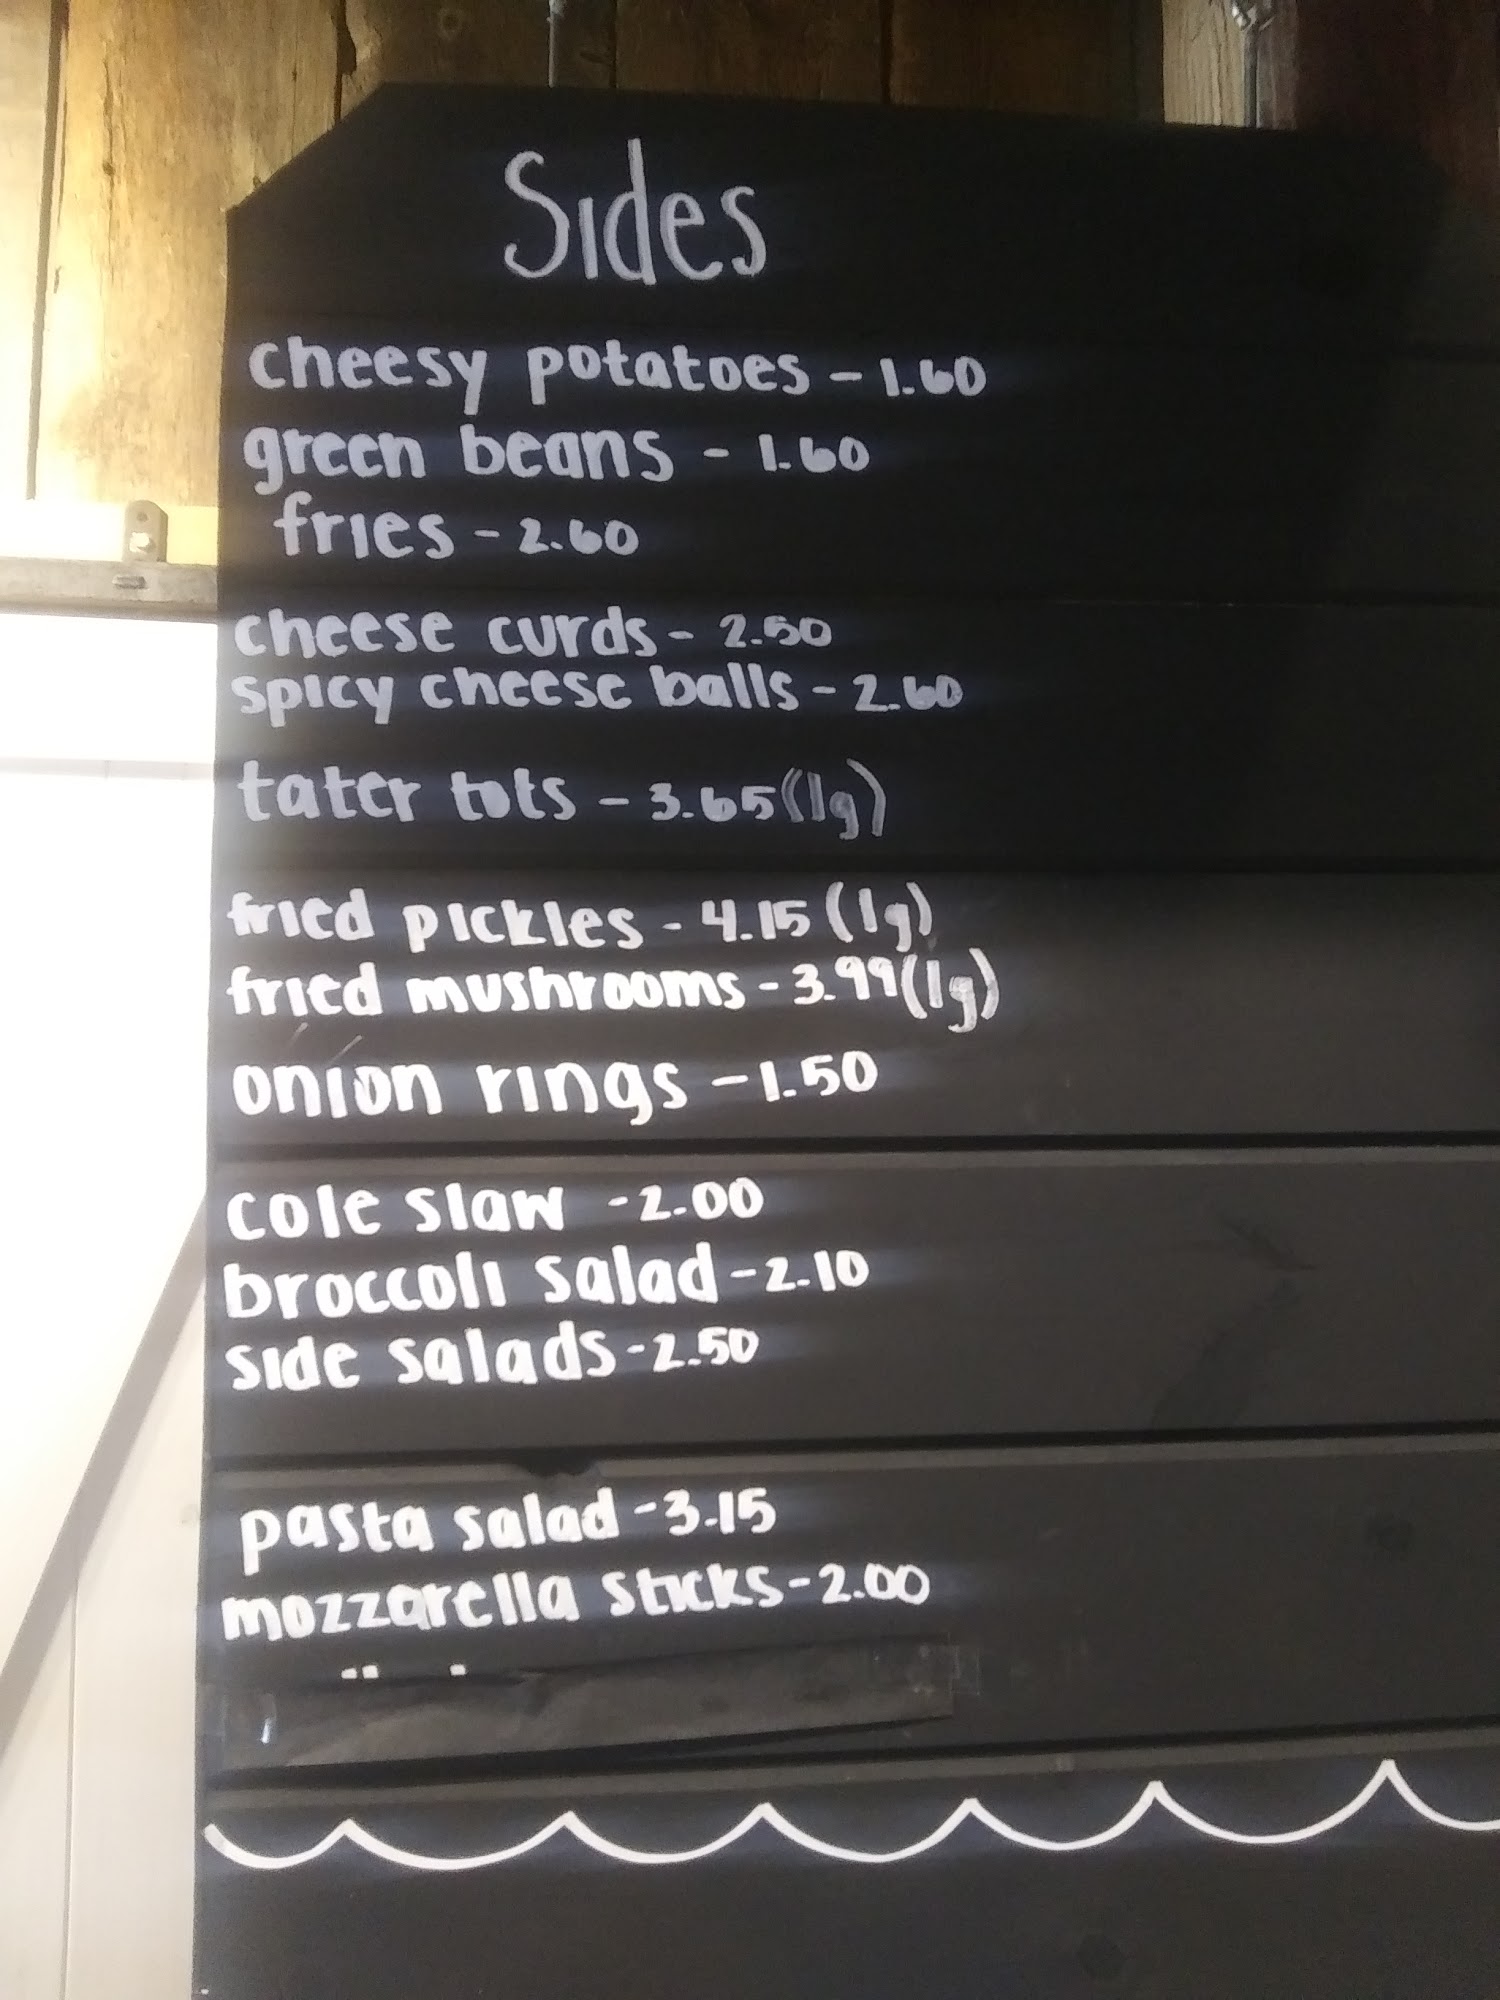 Sides
cheesy potatoes - 1.60
green beans - 1.60
fries - 2.60
cheese curds - 2.50
spicy cheese balls - 2.60
tater tots - 3.65 (lg)
fried pickles - 4.15 (lg)
fried mushrooms - 3.99 (lg)
onion rings - 1.50
cole slaw - 2.00
broccoli salad - 2.10
side salads - 2.50
pasta salad - 3.15
mozzarella sticks - 2.00